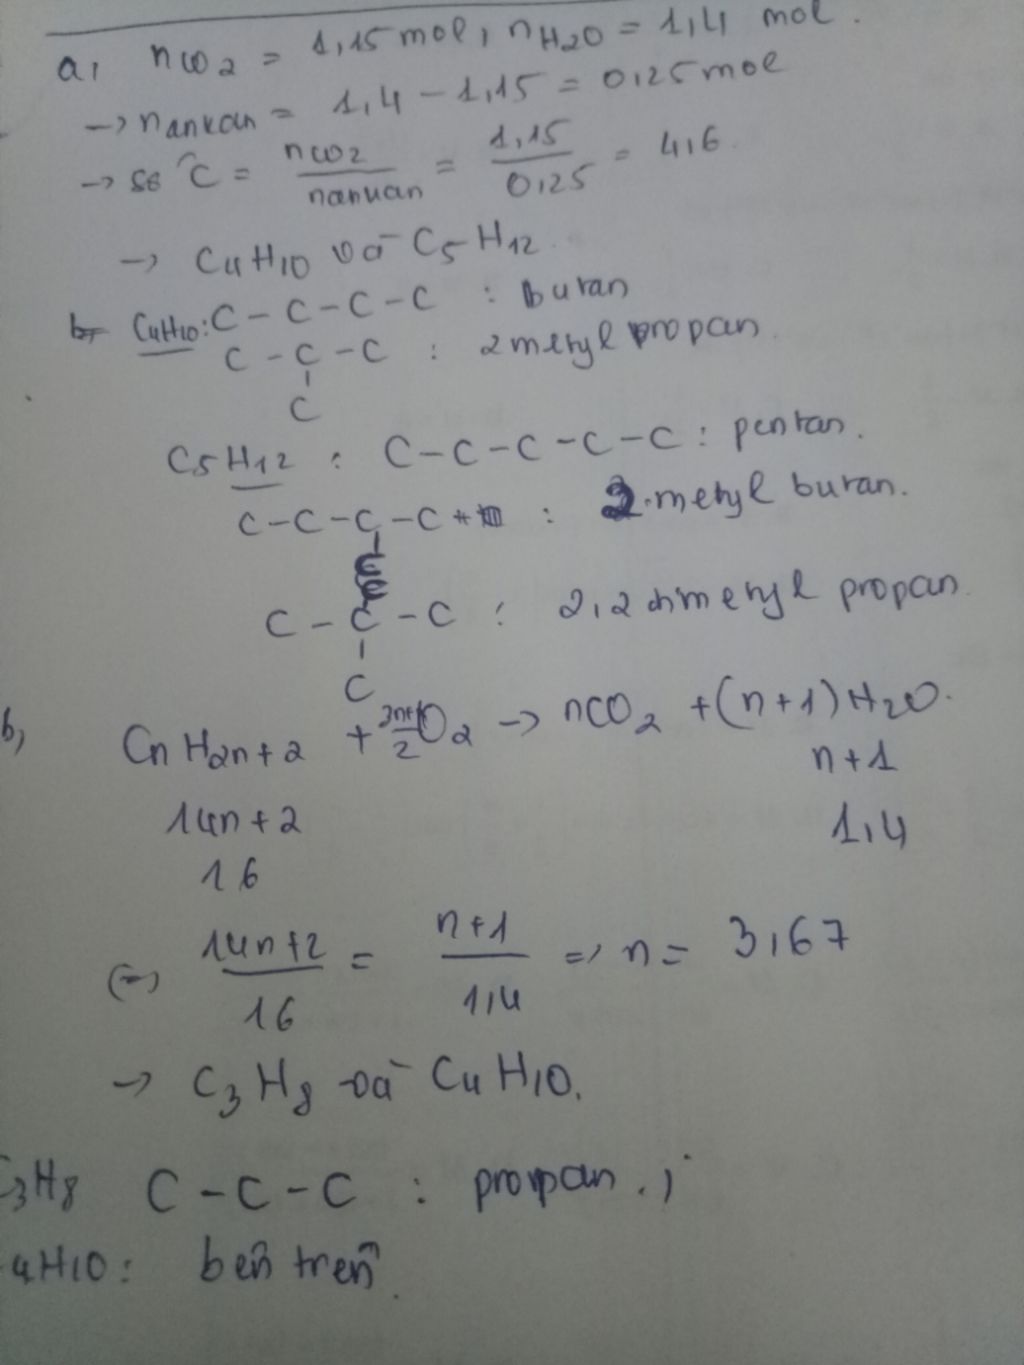 a, nCO2 = 1,15 mol, nH2O = 1,4 mol.
-> nankan = 1,4 - 1,15 = 0,25 mol
-> số C = nCO2/nankan = 1,15/0,25 = 4,6
-> C4H10 và C5H12
C4H10: C - C - C - C : butan
C - C - C : 2 metyl propan.
C
C5H12 : C-C-C-C-C : pentan.
C-C-C-C : 2-metyl butan.
C - C - C : 2,2 dimetyl propan.
C
b, CnH2n+2 + 3n+1/2 O2 -> nCO2 + (n+1)H2O.
n+1
14n+2
1,4
16
(=) 14n+2/16 = n+1/1,4 => n = 3,67
-> C3H8 và C4H10.
C3H8 C - C - C : propan.,
4H10: bên trên.